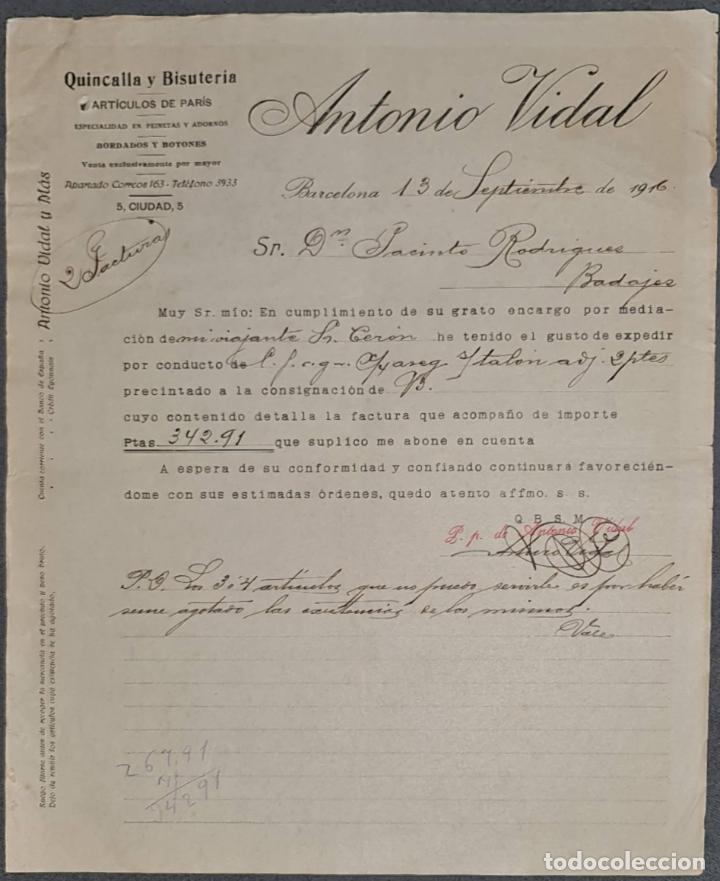 Quincalla y Bisutería
ARTÍCULOS DE PARÍS
ESPECIALIDAD EN PEINETAS Y ADORNOS
BORDADOS Y BOTONES
Venta exclusivamente por mayor
Apartado Correos 163 - Teléfono 3933
5, CIUDAD, 5
Antonio Vidal
Barcelona 13 de Septiembre de 1916.
2 Facturas
Sr. Dn. Jacinto Rodrigues
Badajos
Muy Sr. mío: En cumplimiento de su grato encargo por media-
ción de mi viajante Sr. Cerón he tenido el gusto de expedir
por conducto de talón adj. 2 ptes
precintado a la consignación de
cuyo contenido detalla la factura que acompaño de importe
Ptas. 342.91 que suplico me abone en cuenta
A espera de su conformidad y confiando continuará favorecién-
dome con sus estimadas órdenes, quedo atento affmo. s. s.
Q B S M
P. p. de Antonio Vidal
Arturo Vidal
P.D. Los 3 ó 4 artículos que no puedo servirle es por haber
seme agotado las existencias de los mismos.
Vale
267,91
342 91
Antonio Vidal y Más
Cuenta corriente con el Banco de España
Crédit Lyonnais
Ruego diserte antes de recoger la mercancía en el precinto y peso bruto.
Dejo de remitir los artículos cuya existencia se ha agotado.
todocoleccion
todocoleccion.net